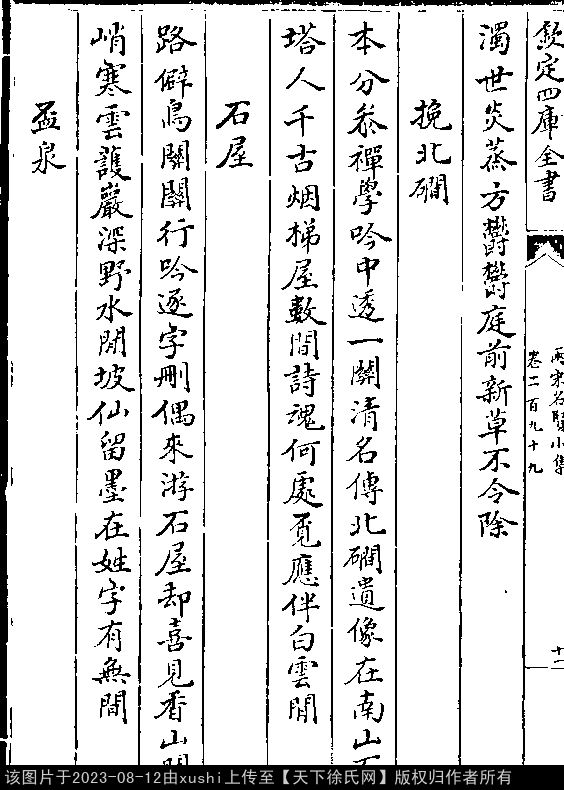 欽定四庫全書
兩宋名賢小集
卷二百九十九
十一
濁世炎蒸方欝欝庭前新草不令除
挽北磵
本分叅禪學吟中透一關清名傳北磵遺像在南山
塔人千古烟梯屋數間詩魂何處覓應伴白雲閒
石屋
路僻鳥關關行吟逐字刪偶來游石屋却喜見香山
峭寒雲䕶巖深野水閒坡仙留墨在姓字有無間
盃泉
该图片于2023-08-12由xushi上传至【天下徐氏网】版权归作者所有